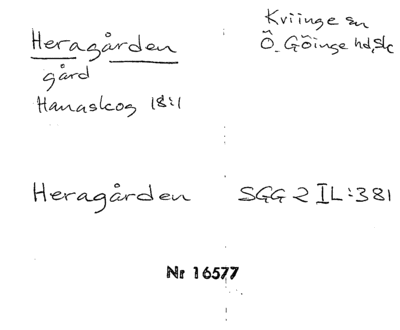 Heragården
gård
Hanaskog 18:1
Kviinge sn
Ö. Göinge hd, Sk
Heragården
SGG 2 IL:381
Nr 16577